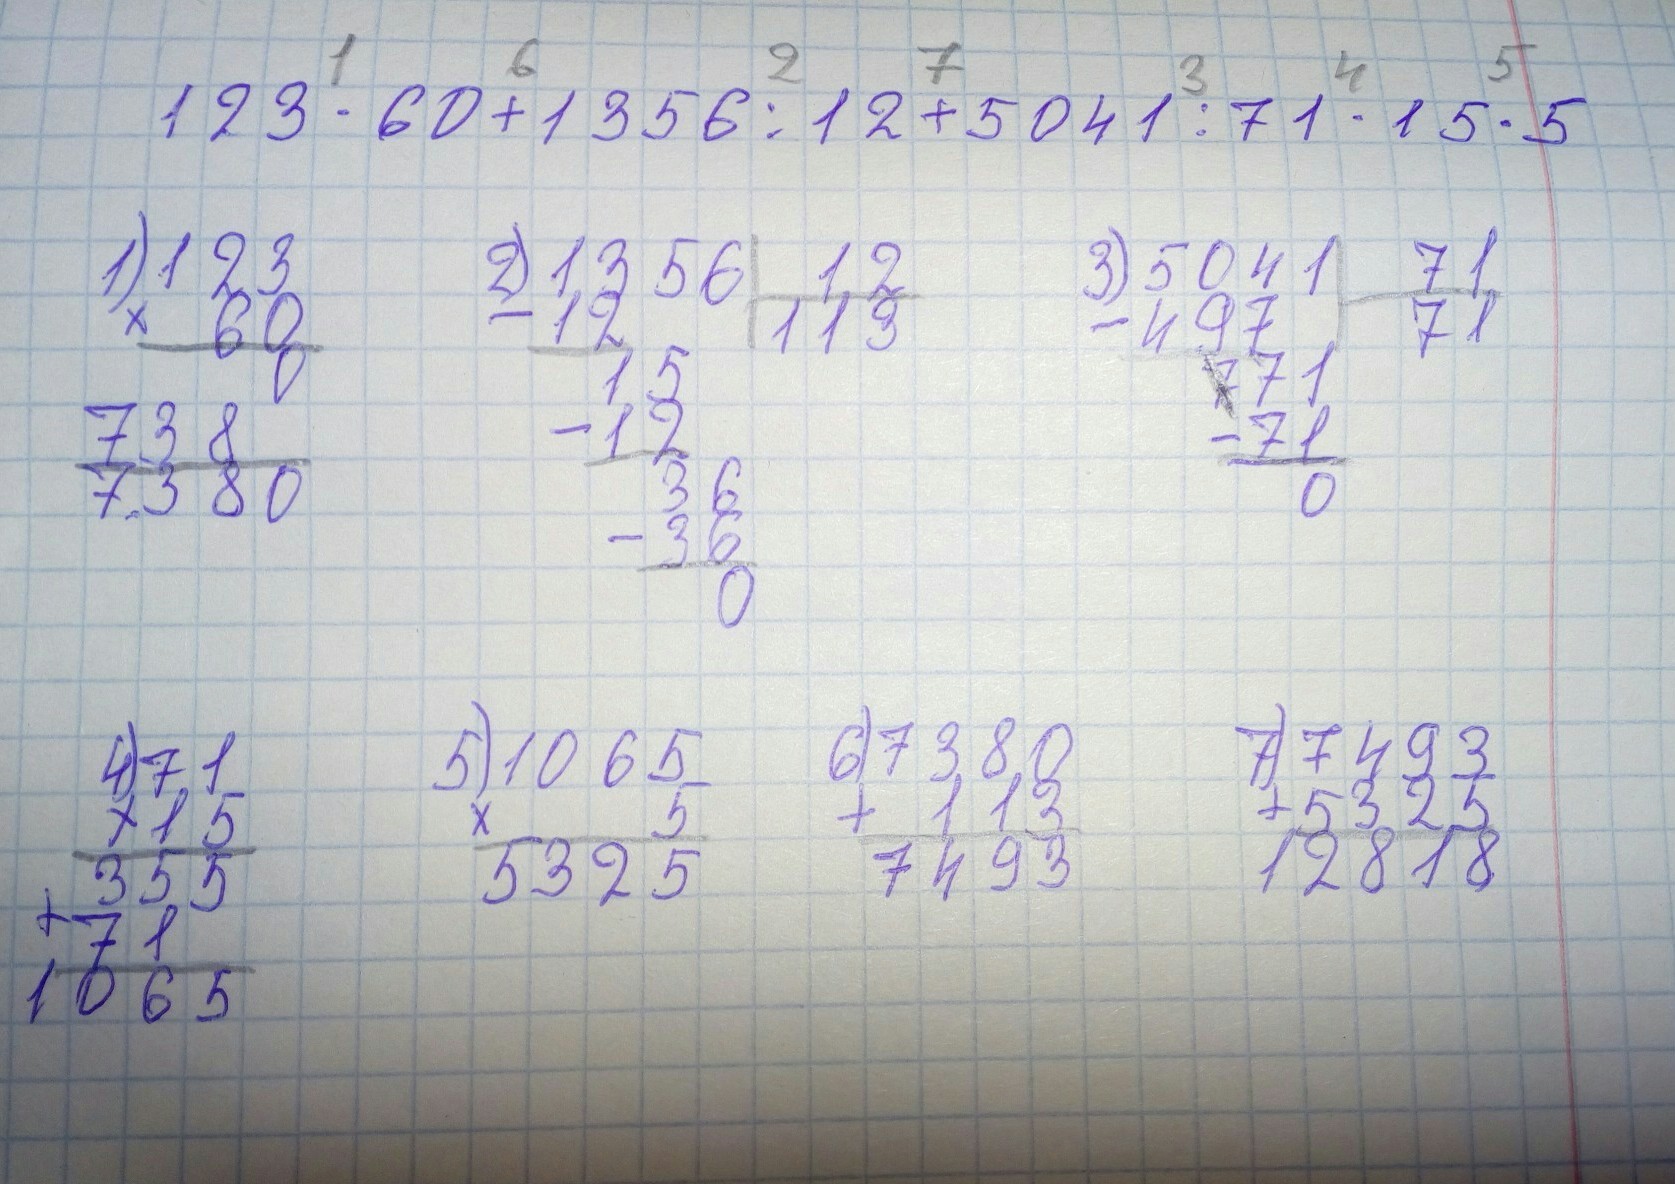 1 6 2 7 3 4 5
123 · 60 + 1356 : 12 + 5041 : 71 · 15 · 5
1) 123
× 60
0
738
7380
2) 1356 | 12
- 12 | 113
15
- 12
36
- 36
0
3) 5041 | 71
- 497 | 71
71
- 71
0
4) 71
× 15
355
+ 71
1065
5) 1065
× 5
5325
6) 7380
+ 113
7493
7) 7493
+ 5325
12818